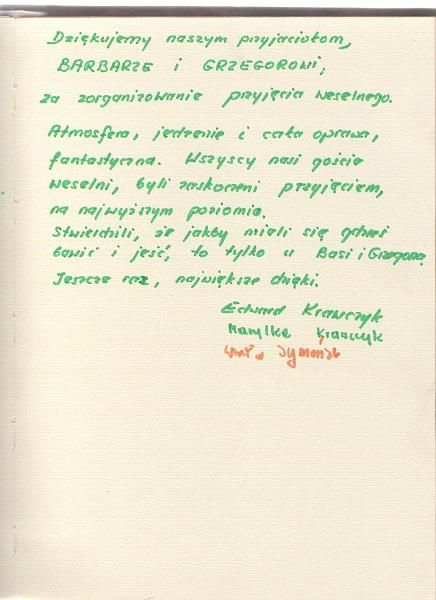 Dziękujemy naszym przyjaciołom,
BARBARZE i GRZEGOROWI,
za zorganizowanie przyjęcia weselnego.
Atmosfera, jedzenie i cała oprawa,
fantastyczna. Wszyscy nasi goście
weselni, byli zaskoczeni przyjęciem,
na najwyższym poziomie.
Stwierdzili, że jakby mieli się gdzieś
bawić i jeść, to tylko u Basi i Grzegorza.
Jeszcze raz, największe dzięki.
Edward Krawczyk
Marylka Krawczyk